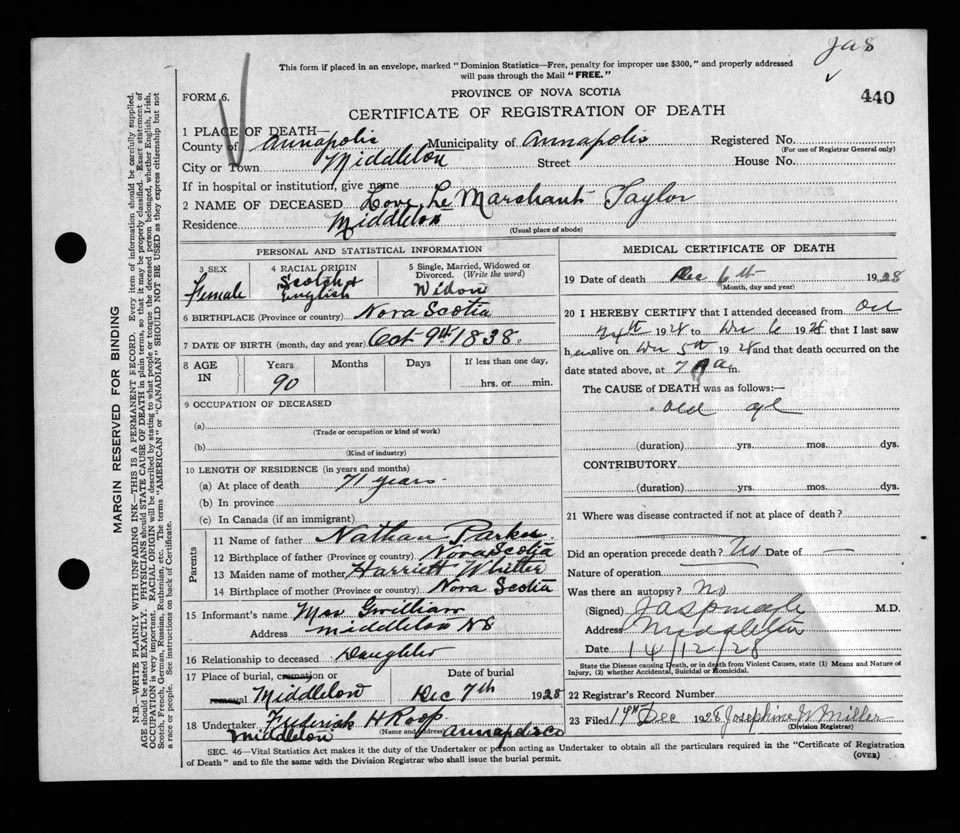 Jas
This form if placed in an envelope, marked "Dominion Statistics—Free, penalty for improper use $300," and properly addressed
will pass through the Mail "FREE."
FORM 6.
PROVINCE OF NOVA SCOTIA
440
CERTIFICATE OF REGISTRATION OF DEATH
1 PLACE OF DEATH—
County of Annapolis Municipality of Annapolis Registered No.
(For use of Registrar General only)
City or Town Middleton Street House No.
If in hospital or institution, give name
2 NAME OF DECEASED Love Le Marchant Taylor
Residence Middleton
(Usual place of abode)
PERSONAL AND STATISTICAL INFORMATION
3 SEX 4 RACIAL ORIGIN 5 Single, Married, Widowed or
Divorced. (Write the word)
Female Scotch & English Widow
6 BIRTHPLACE (Province or country) Nova Scotia
7 DATE OF BIRTH (month, day and year) Oct 9th 1838.
8 AGE IN Years Months Days If less than one day,
90 hrs. or min.
9 OCCUPATION OF DECEASED
(a)
(Trade or occupation or kind of work)
(b)
(Kind of industry)
10 LENGTH OF RESIDENCE (in years and months)
(a) At place of death 71 years
(b) In province
(c) In Canada (if an immigrant)
Parents
11 Name of father Nathan Parker
12 Birthplace of father (Province or country) Nova Scotia
13 Maiden name of mother Harriett
14 Birthplace of mother (Province or country) Nova Scotia
15 Informant's name Mrs Gwilliam
Address Middleton NS
16 Relationship to deceased Daughter
17 Place of burial, cremation or Date of burial
removal Middleton Dec 7th 1928
18 Undertaker Frederick H Roop
(Name and address)
Middleton Annapolis Co
MEDICAL CERTIFICATE OF DEATH
19 Date of death Dec 6th 1928
(Month, day and year)
20 I HEREBY CERTIFY that I attended deceased from
1928 to Dec 6 1928, that I last saw
her alive on Dec 5th 1928 and that death occurred on the
date stated above, at 7 a m.
The CAUSE of DEATH was as follows:—
old age
(duration) yrs. mos. dys.
CONTRIBUTORY
(duration) yrs. mos. dys.
21 Where was disease contracted if not at place of death?
Did an operation precede death? No Date of —
Nature of operation
Was there an autopsy? No
(Signed) M.D.
Address Middleton
Date 14/12/28
State the Disease causing Death, or in death from Violent Causes, state (1) Means and Nature of
Injury, (2) whether Accidental, Suicidal or Homicidal.
22 Registrar's Record Number
23 Filed 19th Dec 1928 Josephine W Miller
(Division Registrar)
SEC. 46—Vital Statistics Act makes it the duty of the Undertaker or person acting as Undertaker to obtain all the particulars required in the "Certificate of Registration
of Death" and to file the same with the Division Registrar who shall issue the burial permit.
(OVER)
MARGIN RESERVED FOR BINDING
N.B.—WRITE PLAINLY WITH UNFADING INK—THIS IS A PERMANENT RECORD. Every item of information should be carefully supplied.
AGE should be stated EXACTLY. PHYSICIANS should STATE CAUSE OF DEATH in plain terms, so that it may be properly classified. Exact statement of
OCCUPATION is very important. RACIAL ORIGIN will be described by stating to what people or tongue the deceased person belonged, whether English, Irish,
Scotch, French, German, Russian, Ruthenian, etc. The terms "AMERICAN" or "CANADIAN" SHOULD NOT BE USED as they express citizenship but not
a race or people. See instructions on back of Certificate.